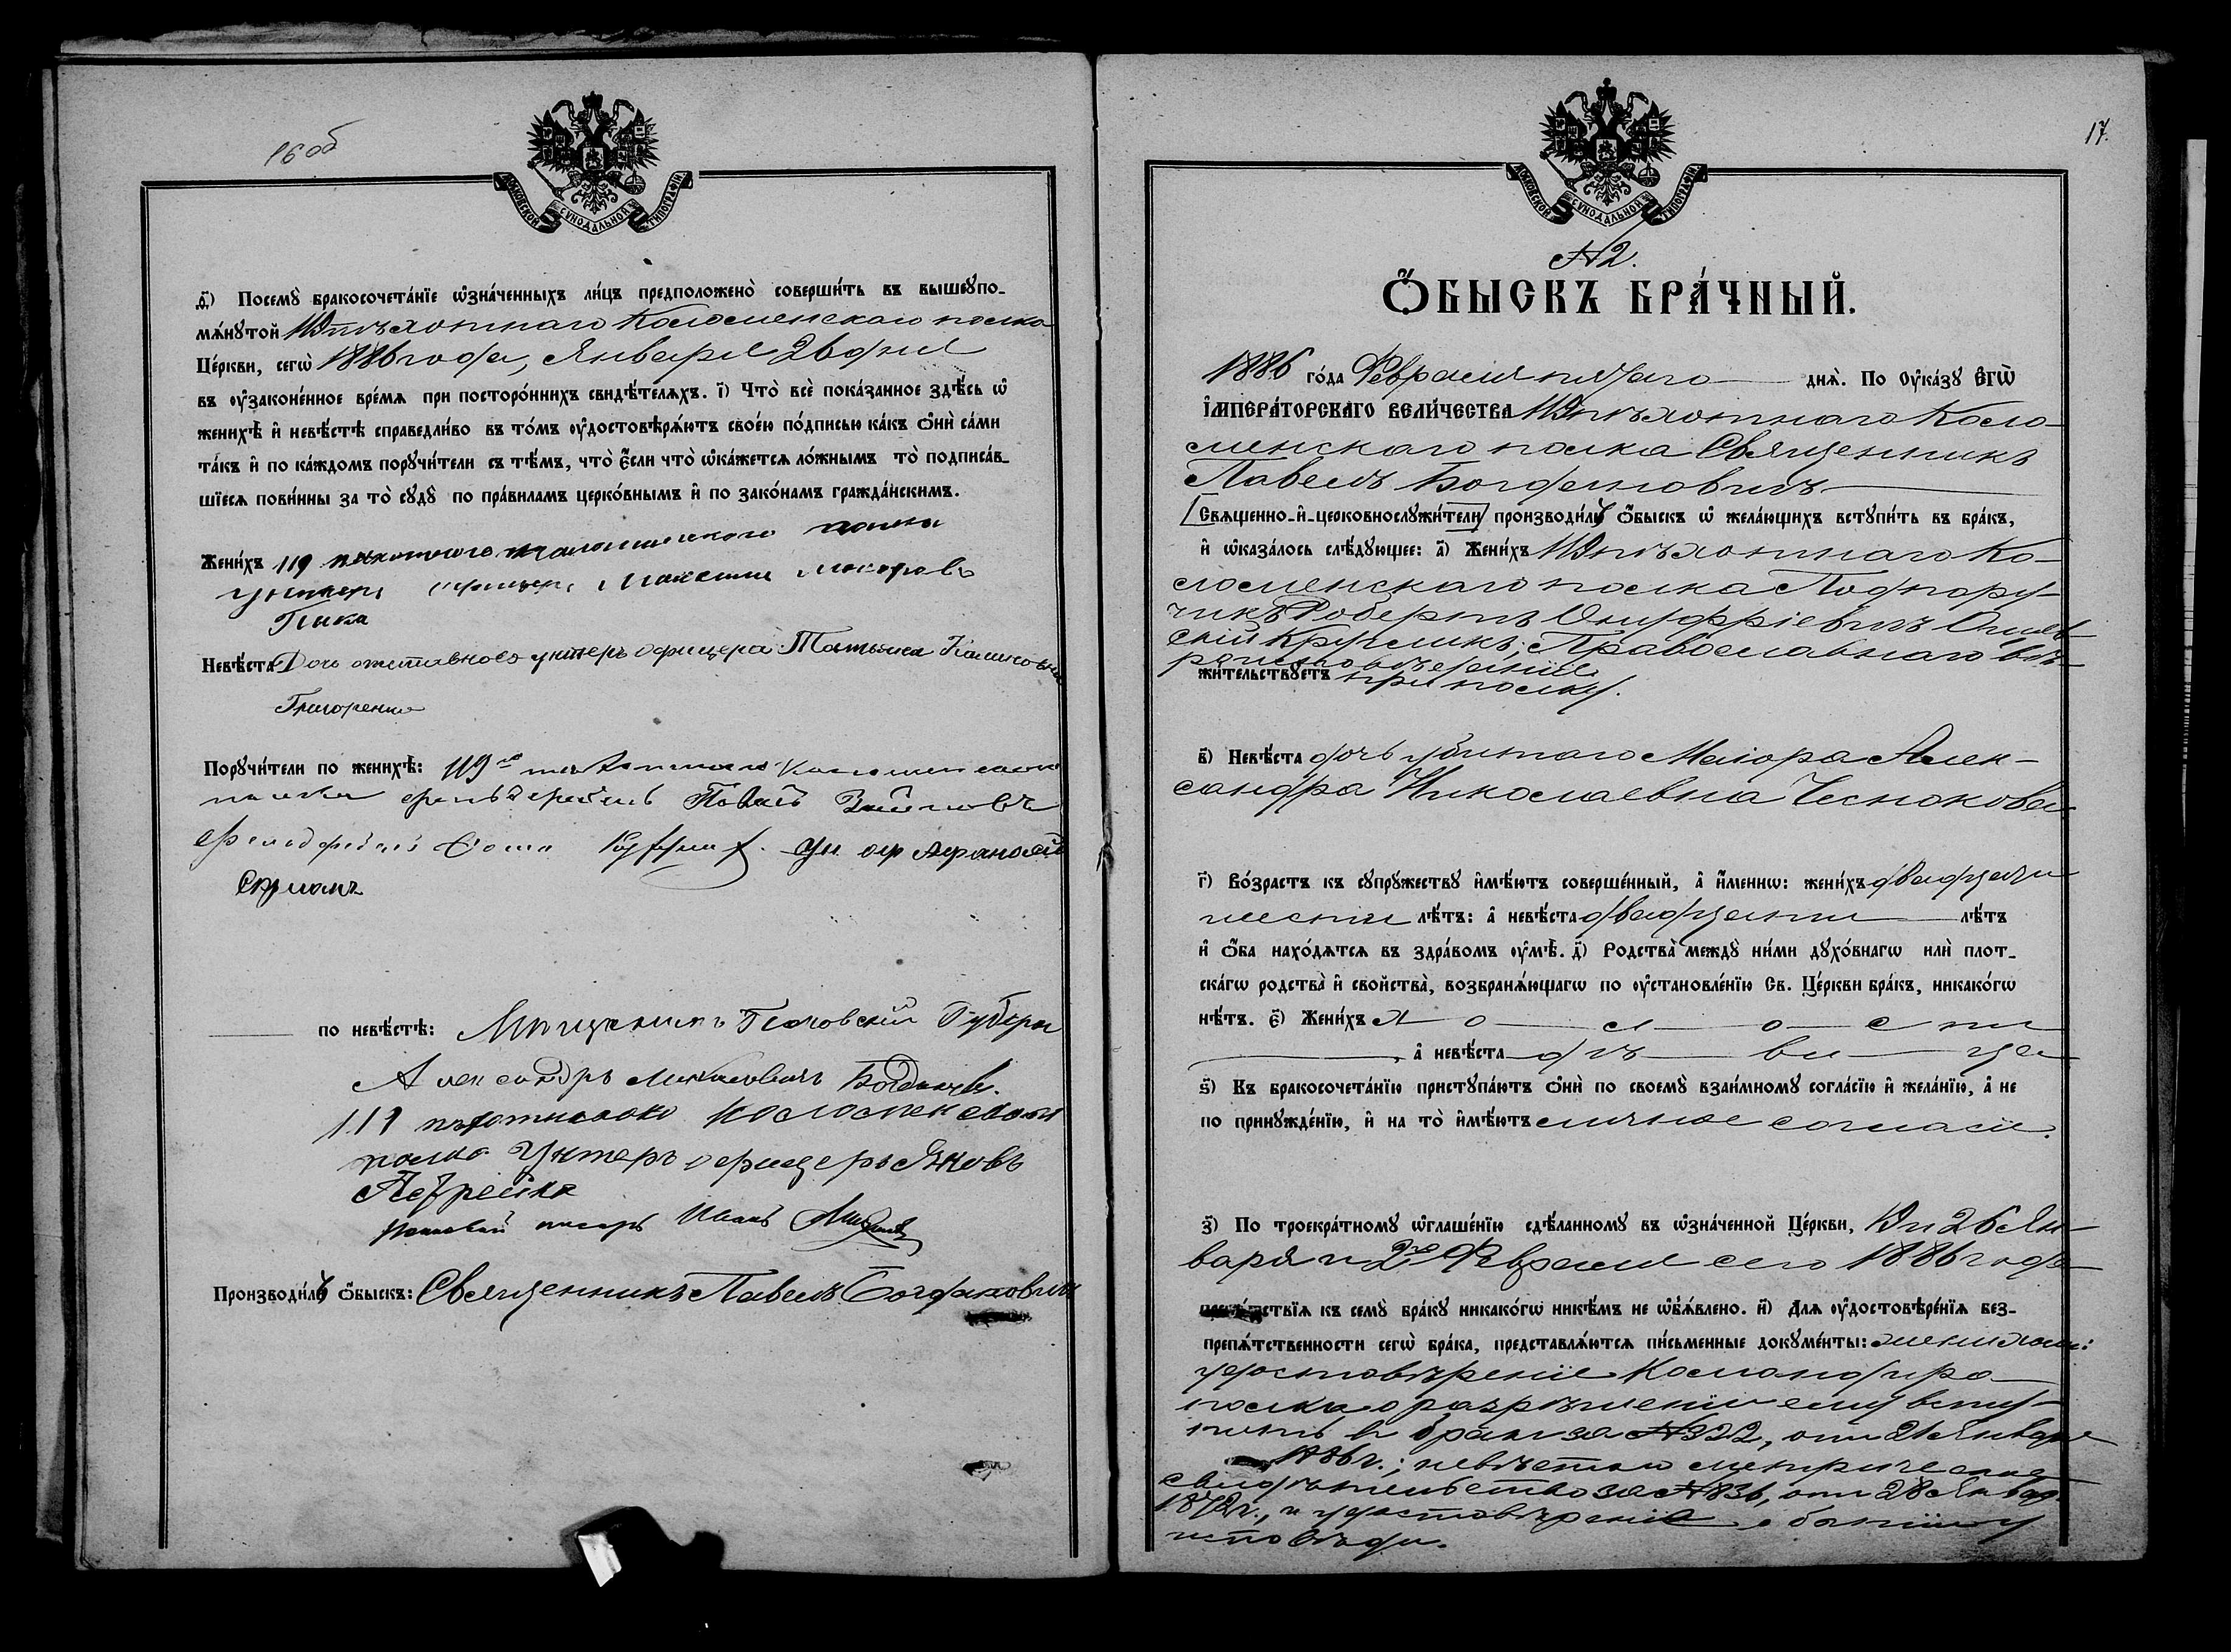 16 об
МОСКОВСКОЙ СУНОДАЛЬНОЙ ТИПОГРАФІИ
д҃) Посемꙋ̀ бракосочета́нїе ѡ҆зна́ченныхъ ли́цъ предположено̀ соверши́ть въ вышеꙋпо-
мѧ́нꙋтой 119 пѣхотнаго Коломенскаго полка
Це́ркви, сегѡ̀ 1886 года, Января 26 дня
въ ѹ҆законе́нное вре́мѧ при посторо́ннихъ свидѣ́телѧхъ. і҃) Что̀ всѐ пока́занное здѣ́сь ѡ҆
женихѣ̀ и҆ невѣ́стѣ справедли́во въ то́мъ ѹ҆достовѣрѧ́ютъ свое́ю по́дписью ка́къ ѻ҆нѝ са́ми
та́къ и҆ по ка́ждомъ порꙋчи́тели съ тѣ́мъ, что̀ є҆́сли что̀ ѡ҆ка́жетсѧ ло́жнымъ то̀ подписа́в-
шїесѧ пови́нны за то̀ сꙋдꙋ̀ по пра́виламъ церко́внымъ и҆ по зако́намъ гражда́нскимъ.
Жени́хъ 119 пехотного коломенского полка
унтеръ офицеръ Максимъ Макаровъ
Гника
Невѣ́ста Дочь отставнаго унтеръ офицера Татьяна
Григоренко
Порꙋчи́тели по женихѣ̀: 119го пехотнаго Коломенскаго
полка фельдфебель Павелъ
фельдфебель Фома ун. оф Афанасий
по невѣ́стѣ: Мѣщанинъ Губерн
Александръ
119 пѣхотнаго Коломенскаго
полка Унтеръ офицеръ Яковъ
полковой писарь Иванъ
Производи́лъ ѻ҆́быскъ: Священникъ Павелъ Богдановичъ
17.
МОСКОВСКОЙ СУНОДАЛЬНОЙ ТИПОГРАФІИ
№ 2.
Ѻ҆́БЫСКЪ БРА́ЧНЫЙ.
1886 го́да Февраля пятаго днѧ̀. По Оу҆ка́зꙋ Є҆ГѠ̀
І҆МПЕРА́ТОРСКАГО ВЕЛИ́ЧЕСТВА 119 пѣхотнаго Коло-
менскаго полка Священникъ
Павелъ Богдановичъ
[Свѧщенно-и҆-церковнослꙋжи́тели] производи́лъ ѻ҆́быскъ ѡ҆ жела́ющихъ встꙋпи́ть въ бра́къ,
и҆ ѡ҆каза́лось слѣ́дꙋющее: а҃) Жени́хъ 119 пѣхотнаго Ко-
ломенскаго полка Подпору-
чикъ Робертъ Онуфріевичъ
Православнаго вѣ-
жи́тельствꙋетъ при полку.
в҃) Невѣ́ста дочь убитаго Маіора Алек-
сандра Николаевна Чеснокова
г҃) Во́зрастъ къ сꙋпрꙋ́жествꙋ и҆мѣ́ютъ соверше́нный, а҆ и҆́меннѡ: жени́хъ двадцати
шести лѣ́тъ: а҆ невѣ́ста двадцати лѣ́тъ
и҆ ѻ҆́ба нахо́дѧтсѧ въ здра́вомъ ѹ҆мѣ̀. д҃) Родства̀ междꙋ̀ ни́ми дꙋхо́внагѡ илѝ плот-
ска́гѡ родства̀ и҆ свойства̀, возбранѧ́ющагѡ по ѹ҆становле́нїю Св. Це́ркви бра́къ, никако́гѡ
нѣ́тъ. є҃) Жени́хъ холостъ
, а҆ невѣ́ста дѣвица
ѕ҃) Къ бракосочета́нїю пристꙋпа́ютъ ѻ҆нѝ по своемꙋ̀ взаи́мномꙋ согла́сїю и҆ жела́нїю, а҆ не
по принꙋжде́нїю, и҆ на то̀ и҆мѣ́ютъ личное согласіе.
з҃) По троекра́тномꙋ ѡ҆глаше́нїю сдѣ́ланномꙋ въ ѡ҆зна́ченной Це́ркви, 19 и 26 Ян-
варя и 2го Февраля сего 1886 года
препѧ́тствїѧ къ семꙋ̀ бра́кꙋ никако́гѡ никѣ́мъ не ѡ҆б̾ѧ́влено. и҃) Длѧ ѹ҆достовѣре́нїѧ без-
препѧ́тственности сегѡ̀ бра́ка, представлѧ́ютсѧ пи́сьменные докꙋме́нты: женихомъ:
удостовѣреніе Командира
полка о разрѣшеніи ему всту-
пить въ бракъ за № 322, отъ 21 Января
1886 г.; невѣстою метрическое
свидѣтельство за № 836, отъ 28 Января
1872 г., и удостовѣреніе о бытіи у
исповѣди.